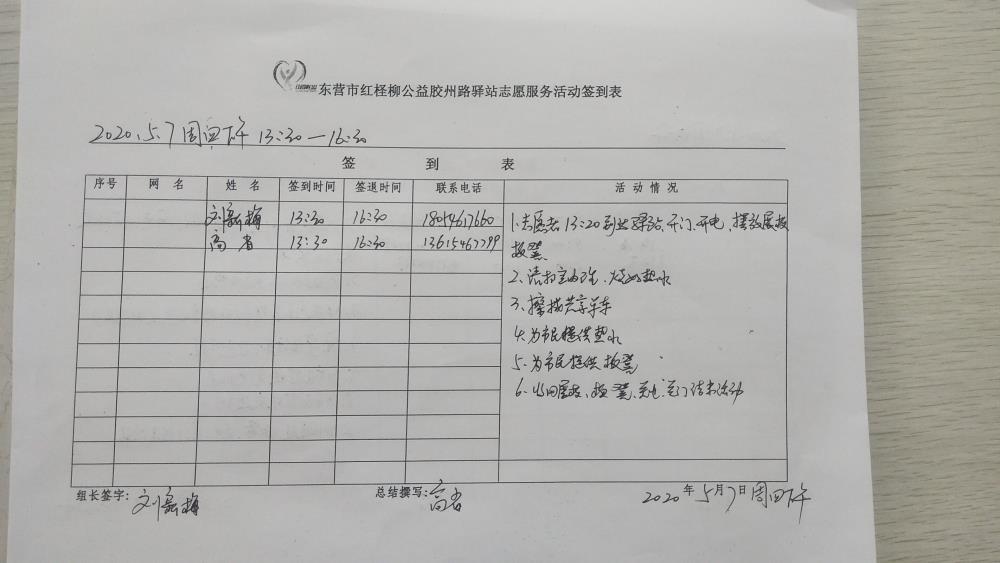 东营市红柽柳公益胶州路驿站志愿服务活动签到表
2020.5.7周四下午 13:30—16:30
签 到 表
序号 网 名 姓 名 签到时间 签退时间 联系电话 活 动 情 况
刘新梅 13:30 16:30 18054617660
高省 13:30 16:30 13615467799
1.志愿者13:20到达驿站、开门、开电、摆放展板
板凳
2、清扫室内卫生、烧热水
3、擦拭共享单车
4.为市民提供热水
5.为市民提供板凳
6.收回展板、板凳、关电、关门结束活动
组长签字: 刘新梅 总结撰写: 高省 2020年5月7日周四下午